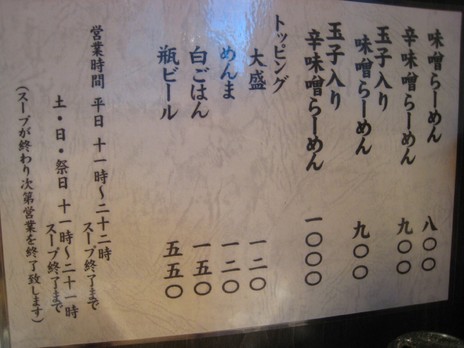 味噌らーめん 八〇〇
辛味噌らーめん 九〇〇
玉子入り
味噌らーめん 九〇〇
玉子入り
辛味噌らーめん 一〇〇〇
トッピング
大盛 一二〇
めんま 一二〇
白ごはん 一五〇
瓶ビール 五五〇
営業時間 平日 十一時〜二十二時
スープ終了まで
土・日・祭日 十一時〜二十一時
スープ終了まで
(スープが終わり次第営業を終了致します)